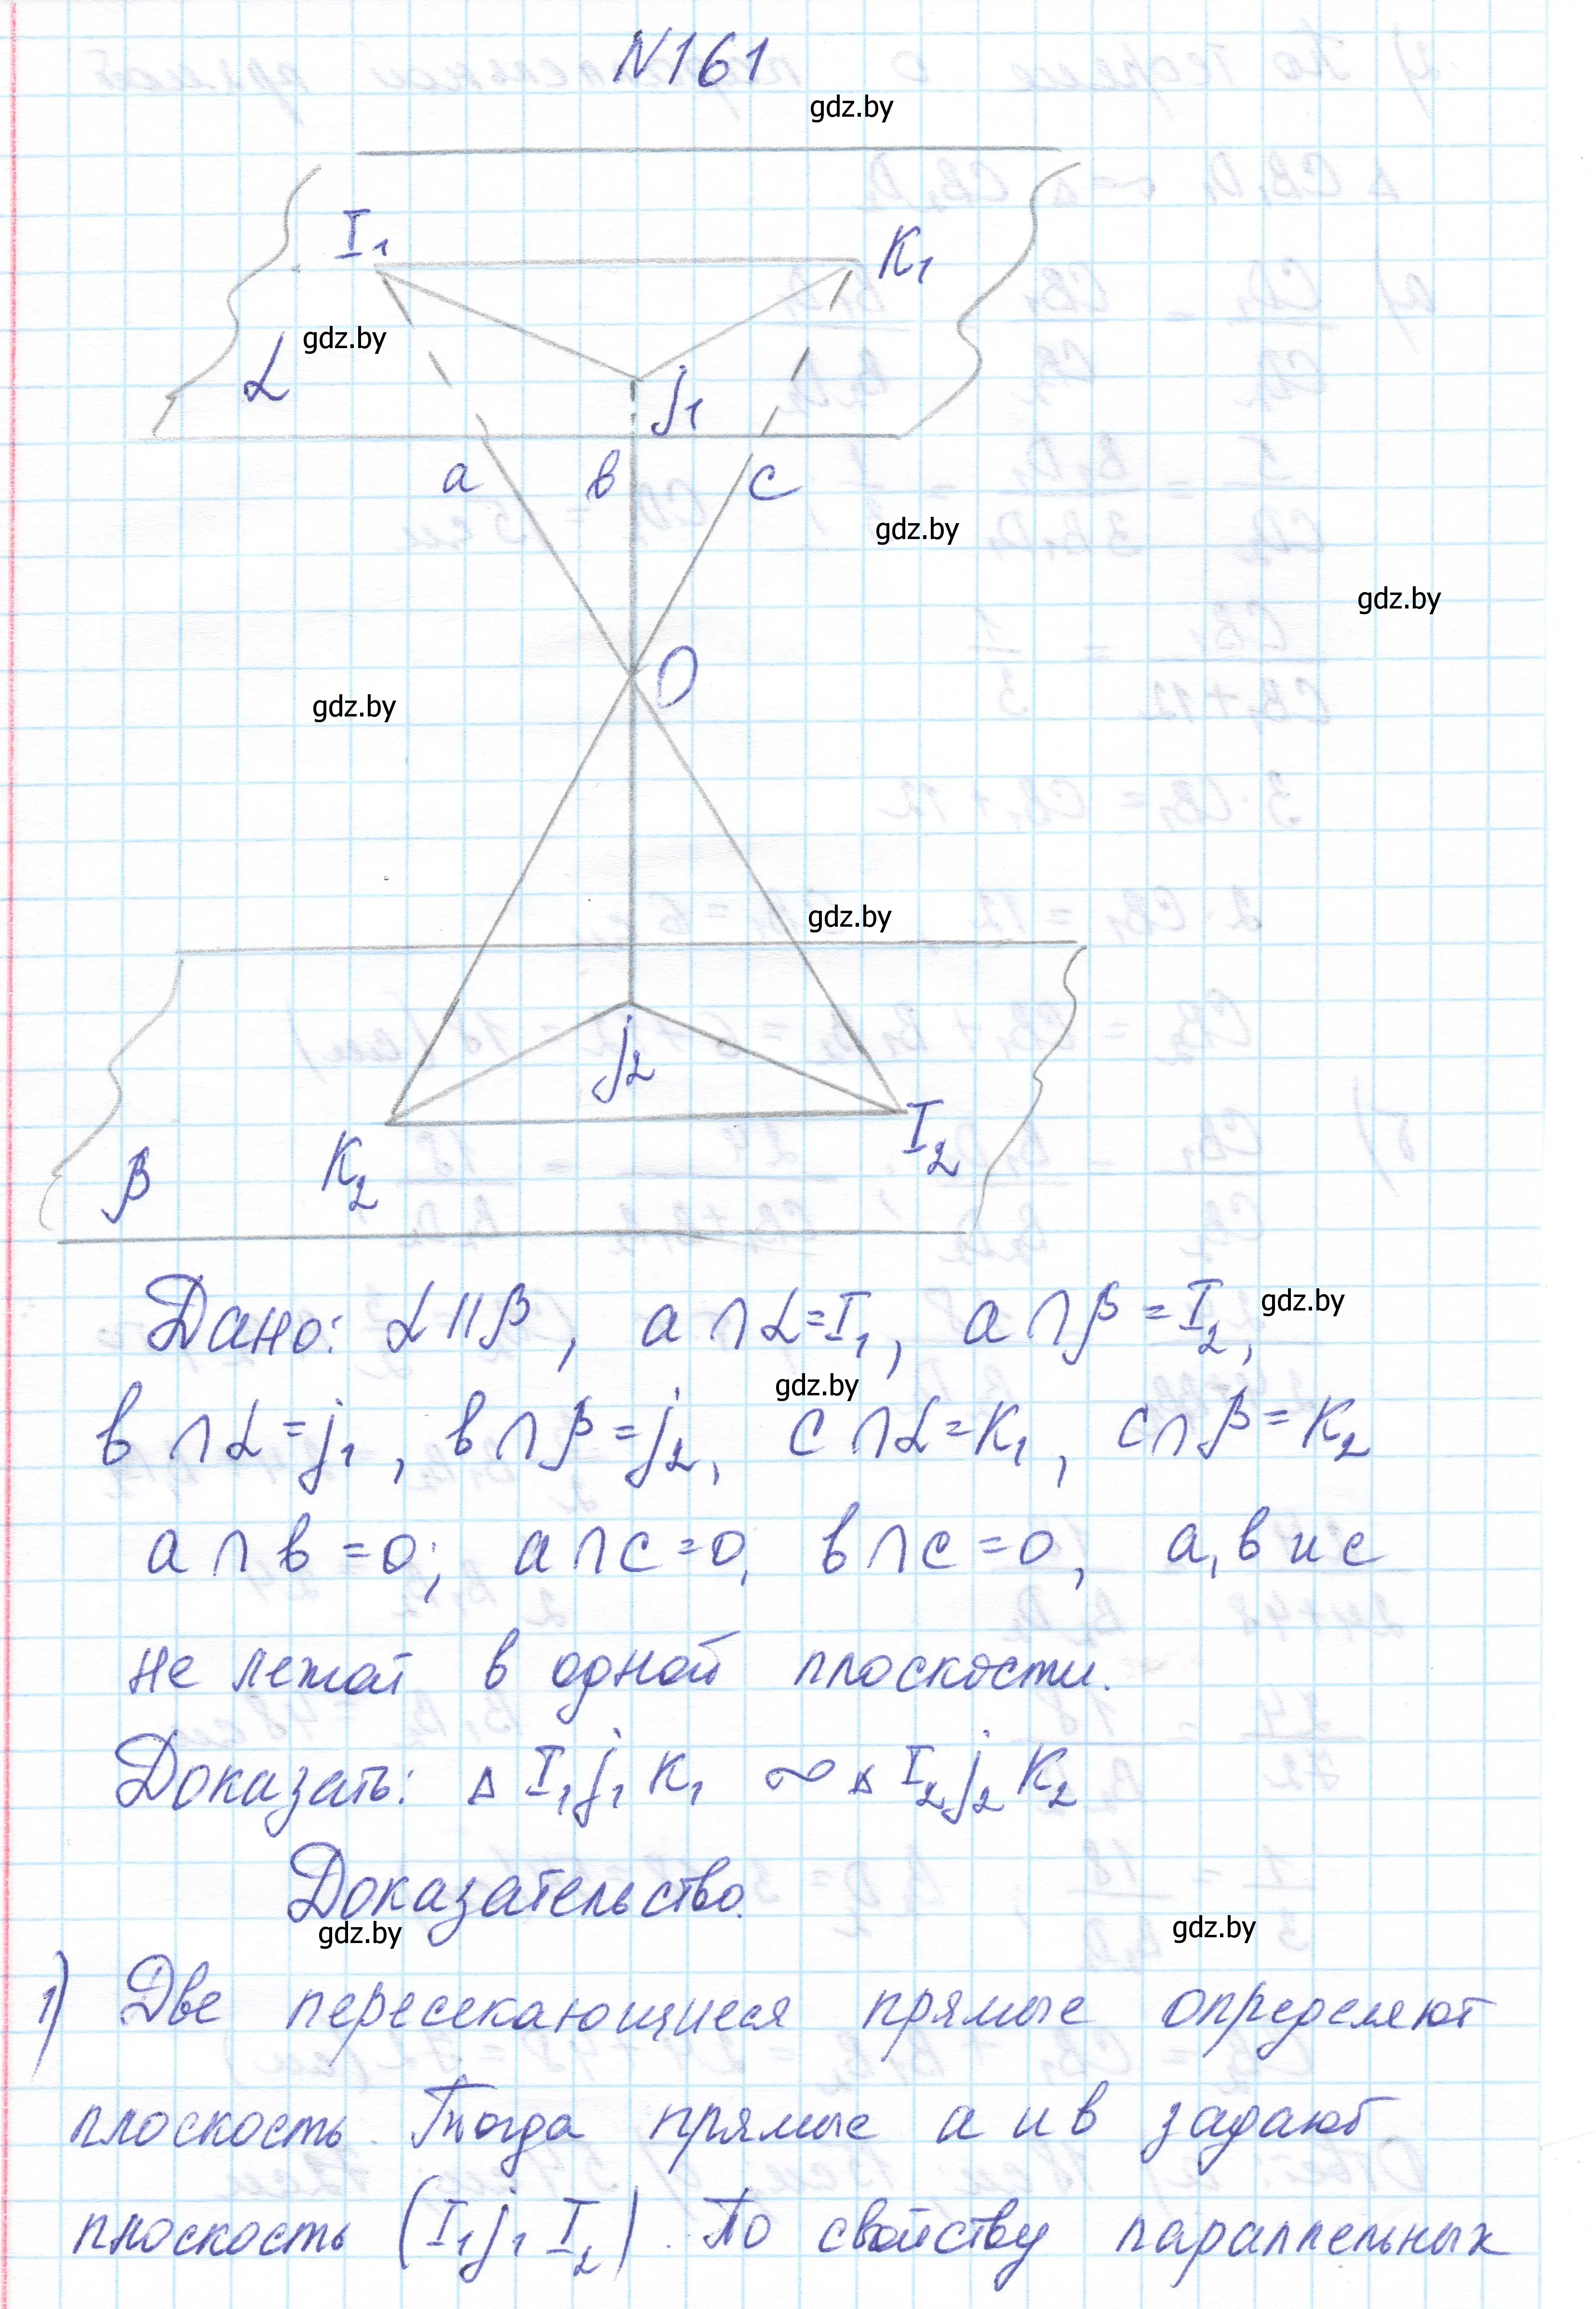 N161
gdz.by
I₁
K₁
gdz.by
α
j₁
a в c
gdz.by
gdz.by
O
gdz.by
gdz.by
j₂
I₂
K₂
β
Дано: α||β, a∩α=I₁, a∩β=I₂, gdz.by
gdz.by
в∩α=j₁, в∩β=j₂, c∩α=K₁, c∩β=K₂
a∩в=0; a∩c=0, в∩c=0, a, в и c
не лежат в одной плоскости.
Доказать: Δ I₁j₁K₁ ∾ Δ I₂j₂K₂
Доказательство.
gdz.by gdz.by
1) Две пересекающиеся прямые определяют
плоскость. Тогда прямые a и в задают
плоскость (I₁j₁I₂). По свойству параллельных